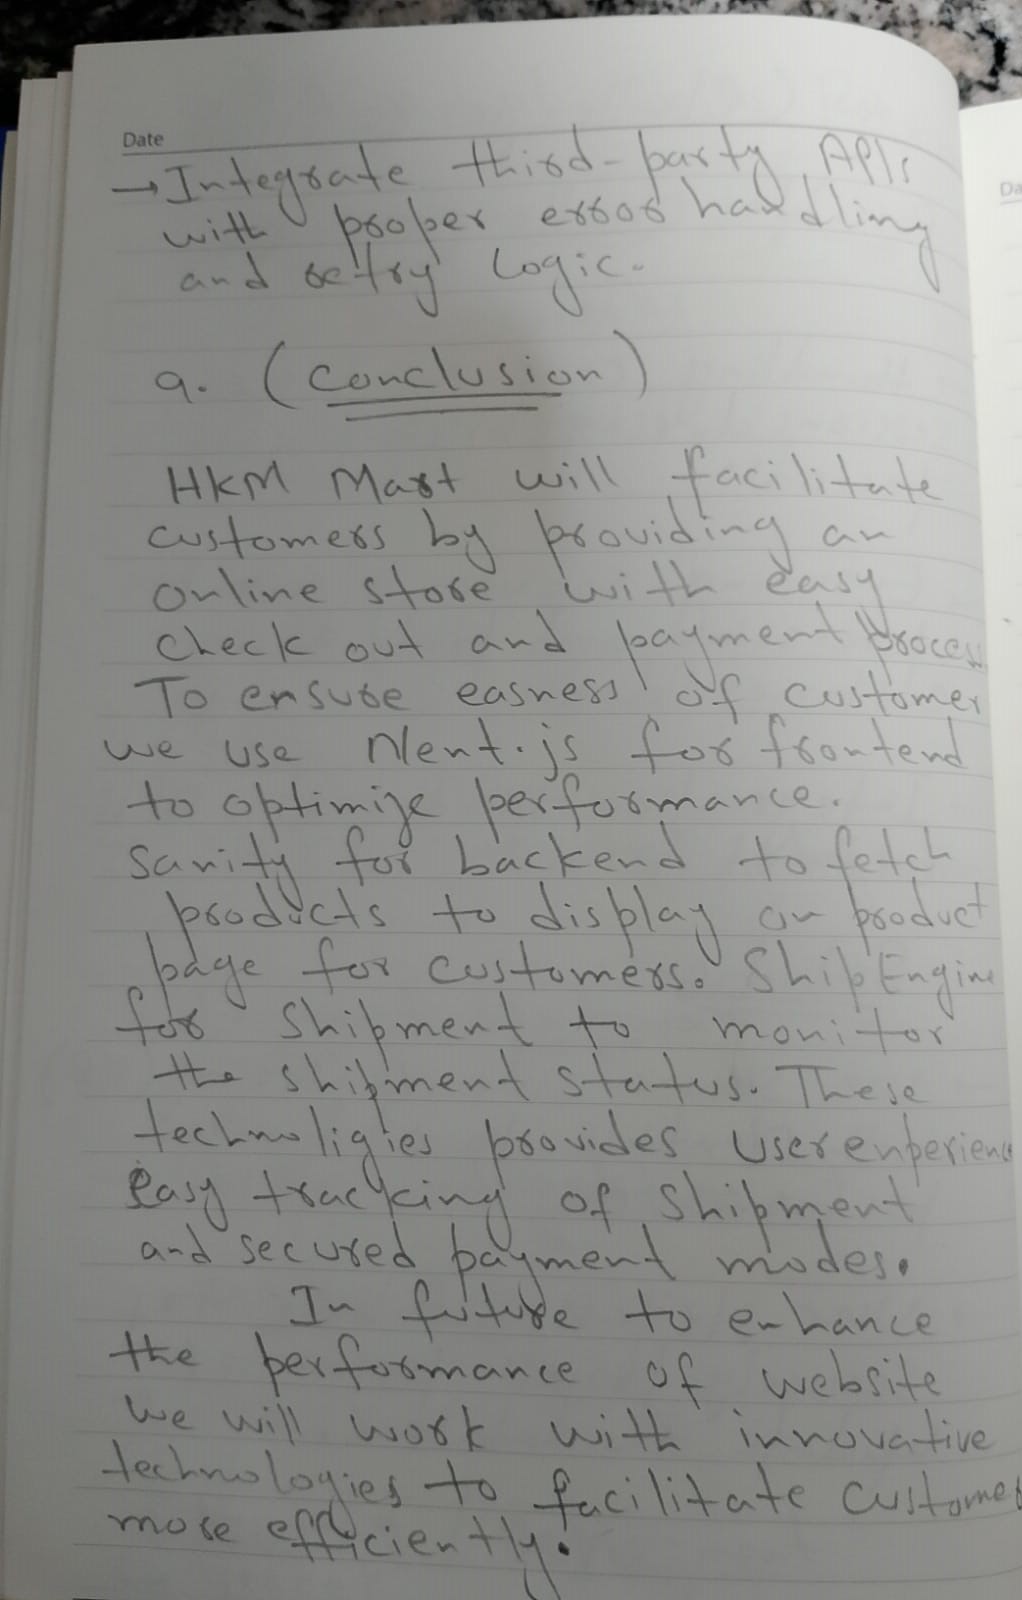 Date
→ Integrate third-party APIs
with proper error handling
and retry logic.
9. (Conclusion)
HKM Mart will facilitate
customers by providing an
online store with easy
check out and payment process
To ensure easness of customer
we use Next.js for frontend
to optimize performance.
Sanity for backend to fetch
products to display on product
page for customers. ShipEngine
for shipment to monitor
the shipment status. These
technoligies provides user experience
Easy tracking of shipment
and secured payment modes.
In future to enhance
the performance of website
we will work with innovative
technologies to facilitate customer
more efficiently.